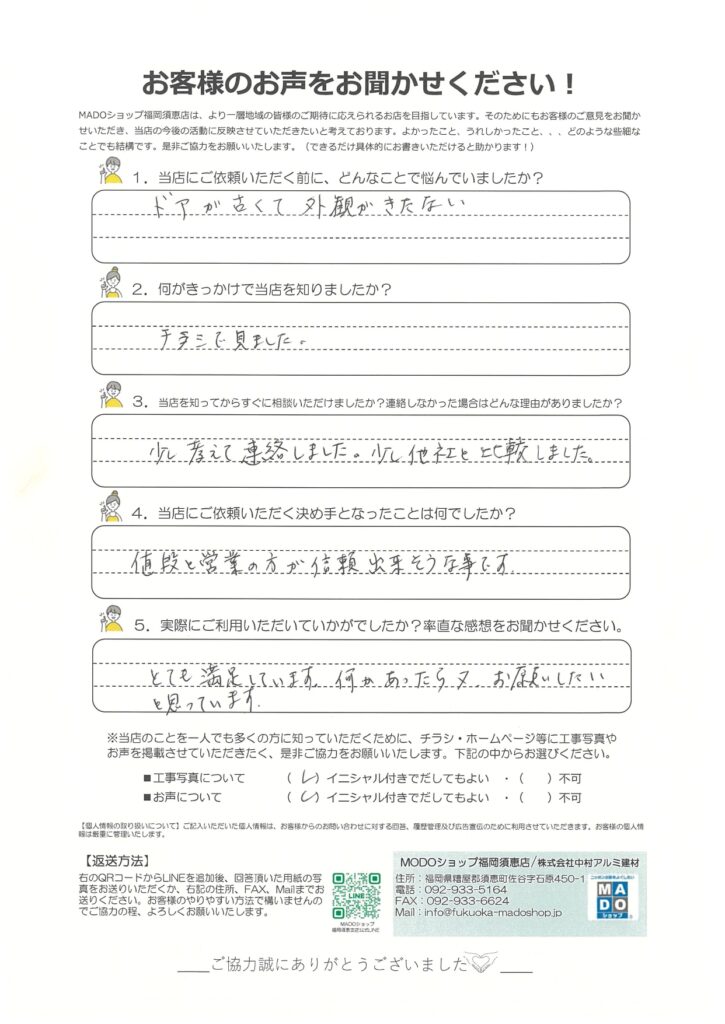 お客様のお声をお聞かせください！
MADOショップ福岡須恵店は、より一層地域の皆様のご期待に応えられるお店を目指しています。そのためにもお客様のご意見をお聞か
せいただき、当店の今後の活動に反映させていただきたいと考えております。よかったこと、うれしかったこと、、、どのような些細な
ことでも結構です。是非ご協力をお願いいたします。（できるだけ具体的にお書きいただけると助かります！）
1．当店にご依頼いただく前に、どんなことで悩んでいましたか？
ドアが古くて 外観がきたない
2．何がきっかけで当店を知りましたか？
チラシで見ました。
3．当店を知ってからすぐに相談いただけましたか？連絡しなかった場合はどんな理由がありましたか？
少し考えて連絡しました。少し他社と比較しました。
4．当店にご依頼いただく決め手となったことは何でしたか？
値段と営業の方が信頼出来そうな事です。
5．実際にご利用いただいていかがでしたか？率直な感想をお聞かせください。
とても満足しています。何かあったら又、お願いしたい
と思っています。
※当店のことを一人でも多くの方に知っていただくために、チラシ・ホームページ等に工事写真や
お声を掲載させていただきたく、是非ご協力をお願いいたします。下記の中からお選びください。
■工事写真について （ レ ）イニシャル付きでだしてもよい ・（ ）不可
■お声について （ レ ）イニシャル付きでだしてもよい ・（ ）不可
【個人情報の取り扱いについて】ご記入いただいた個人情報は、お客様からのお問い合わせに対する回答、履歴管理及び広告宣伝のために利用させていただきます。お客様の個人情
報は厳重に管理いたします。
【返送方法】
右のQRコードからLINEを追加後、回答頂いた用紙の写
真をお送りいただくか、右記の住所、FAX、Mailまでお
送りください。お客様のやりやすい方法で構いませんの
でご協力の程、よろしくお願いいたします。
MADOショップ
福岡須恵店公式LINE
MODOショップ福岡須恵店/株式会社中村アルミ建材
住所：福岡県糟屋郡須恵町佐谷字石原450-1
電話：092-933-5164
FAX：092-933-6624
Mail：info@fukuoka-madoshop.jp
ニッポンの窓をよくしたい
MADO
ショップ
ご協力誠にありがとうございました